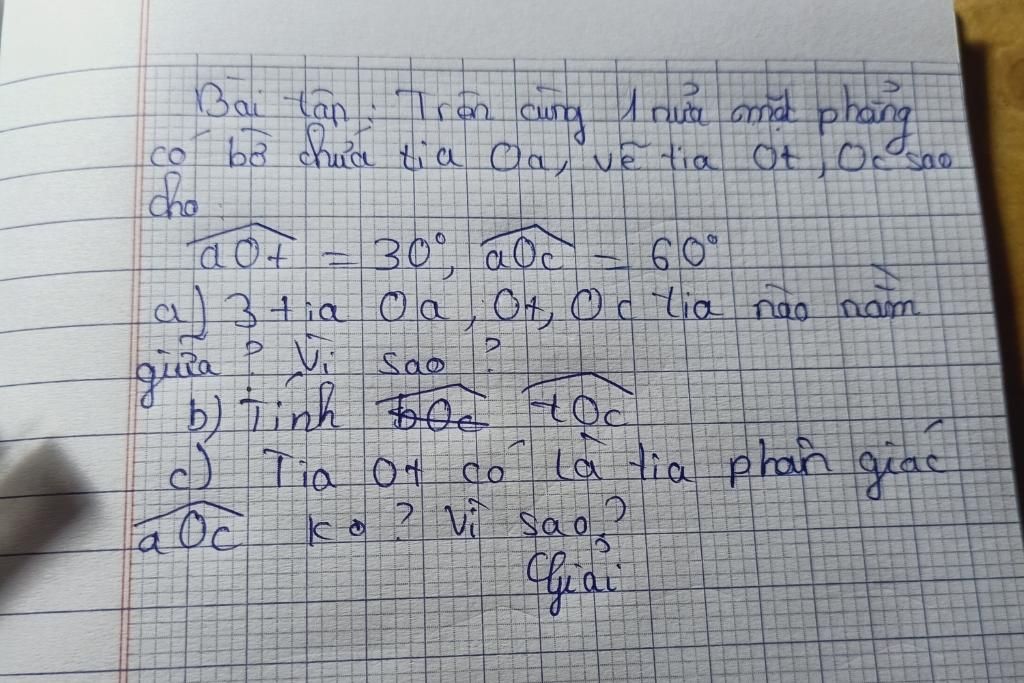 Bài tập: Trên cùng 1 nửa mặt phẳng
có bờ chứa tia Oa, vẽ tia Ot, Oc sao
cho
aOt = 30°, aOc = 60°
a) 3 tia Oa, Ot, Oc tia nào nằm
giữa? Vì sao?
b) Tính bOc tOc
c) Tia Ot có là tia phân giác
aOc ko? Vì sao?
Giải